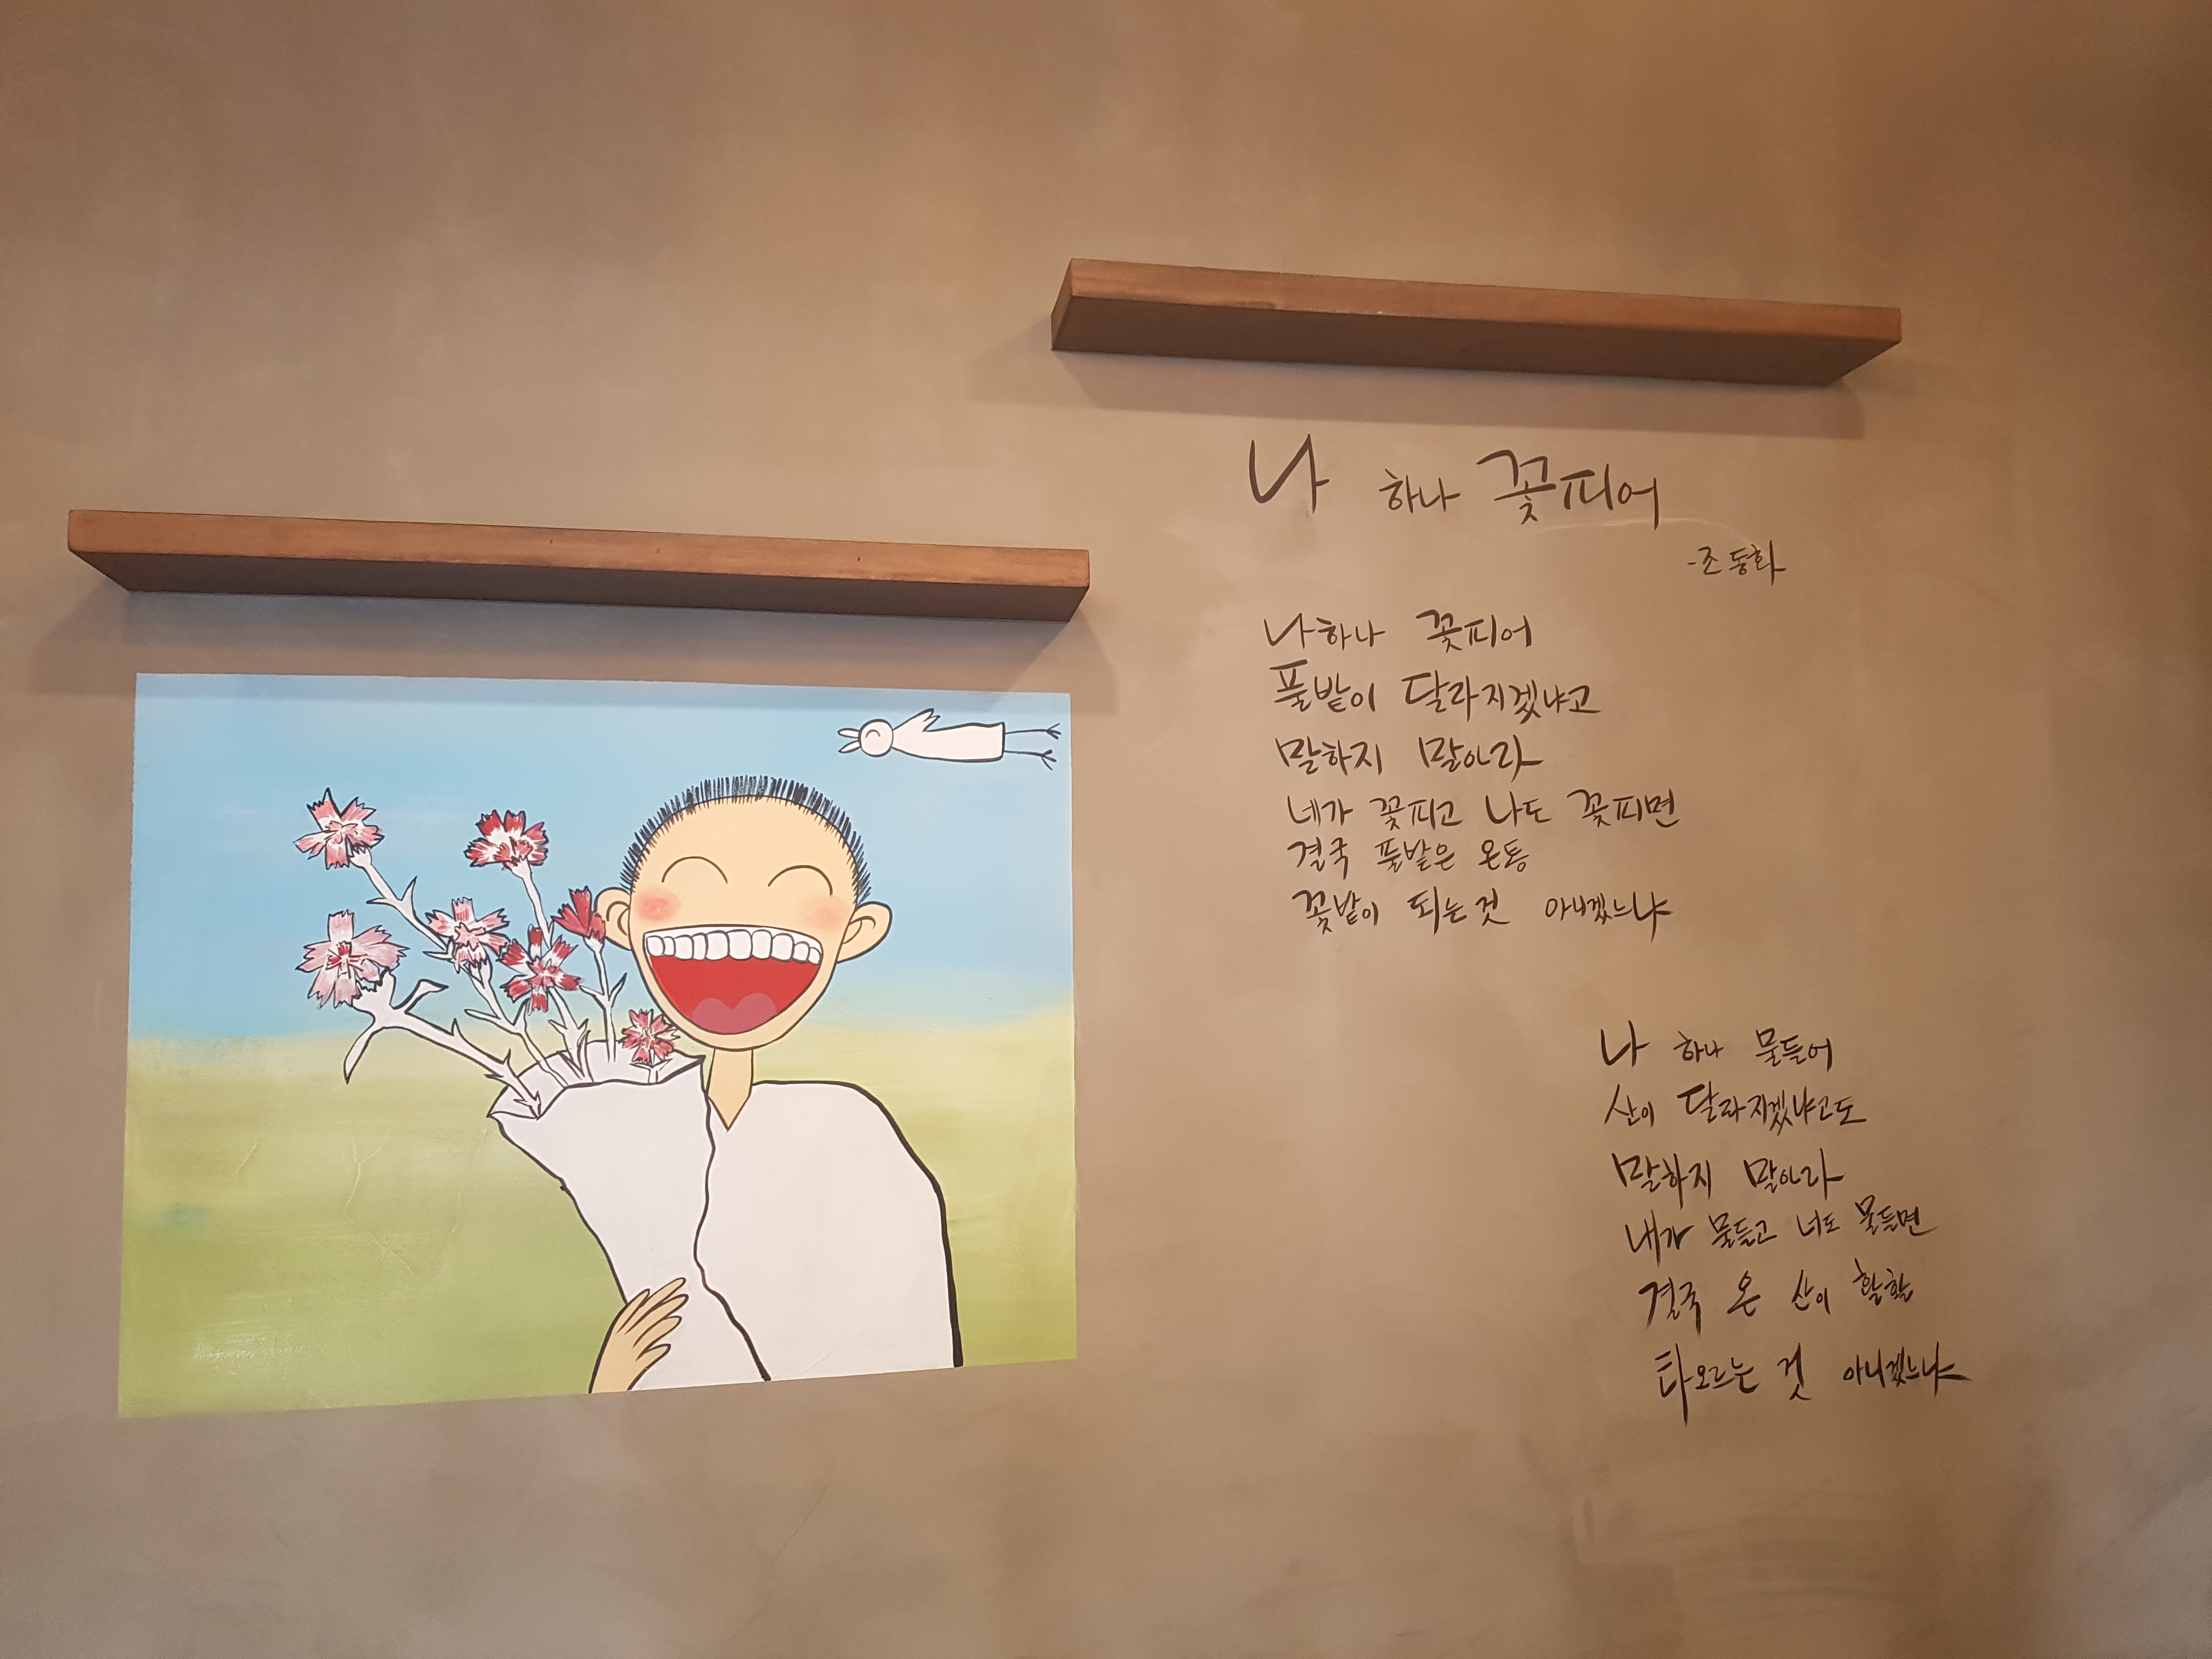 나 하나 꽃피어
-조동화
나하나 꽃피어
풀밭이 달라지겠냐고
말하지 말아라
네가 꽃피고 나도 꽃피면
결국 풀밭은 온통
꽃밭이 되는것 아니겠느냐
나 하나 물들어
산이 달라지겠냐고도
말하지 말아라
내가 물들고 너도 물들면
결국 온 산이 활활
타오르는 것 아니겠느냐